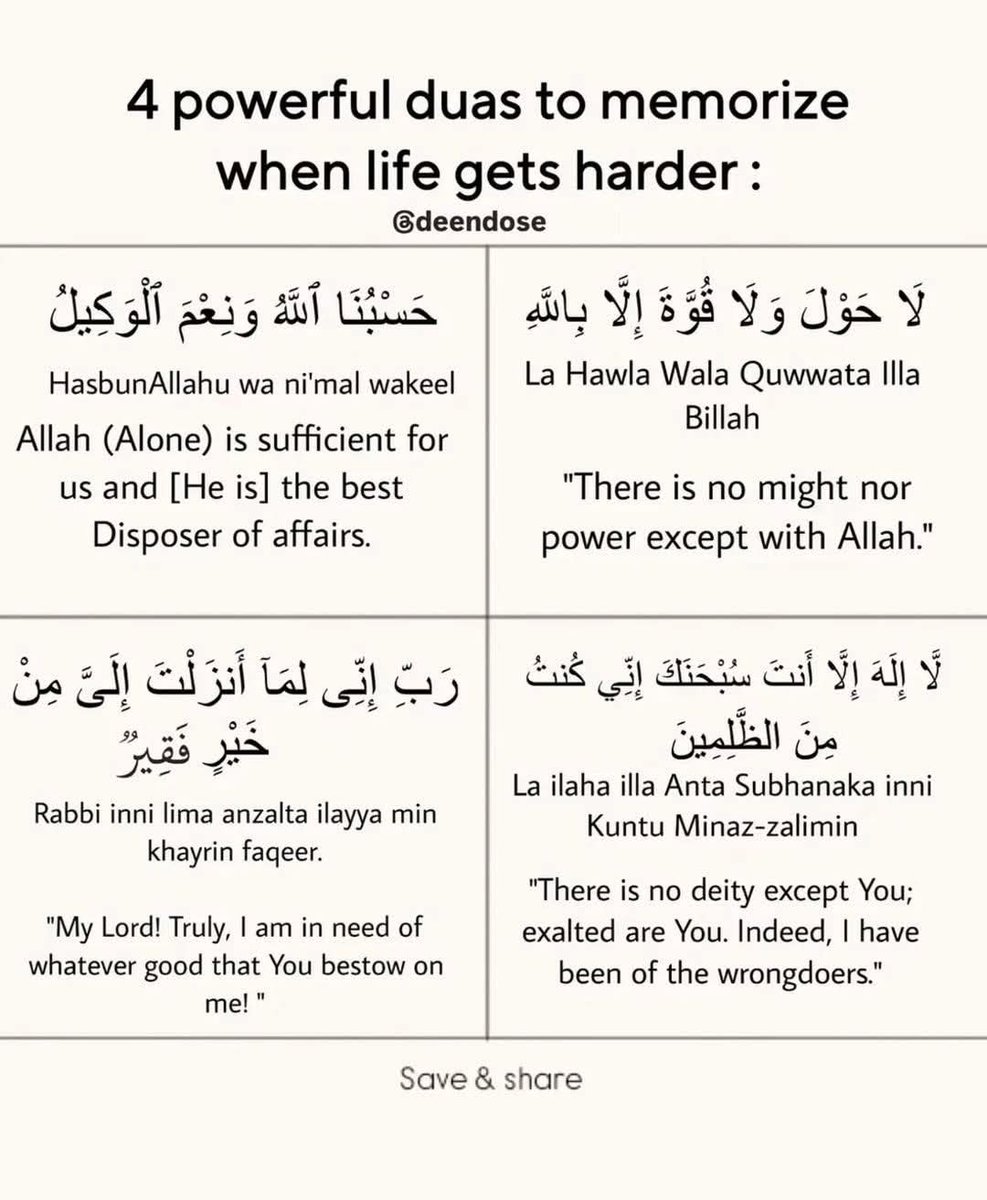 4 powerful duas to memorize
when life gets harder :
@deendose
حَسْبُنَا ٱللَّهُ وَنِعْمَ ٱلْوَكِيلُ
HasbunAllahu wa ni'mal wakeel
Allah (Alone) is sufficient for
us and [He is] the best
Disposer of affairs.
لَا حَوْلَ وَلَا قُوَّةَ إِلَّا بِاللَّهِ
La Hawla Wala Quwwata Illa
Billah
"There is no might nor
power except with Allah."
رَبِّ إِنِّى لِمَآ أَنزَلْتَ إِلَىَّ مِنْ
خَيْرٍ فَقِيرٌ
Rabbi inni lima anzalta ilayya min
khayrin faqeer.
"My Lord! Truly, I am in need of
whatever good that You bestow on
me! "
لَّا إِلَهَ إِلَّا أَنتَ سُبْحَنَكَ إِنِّي كُنتُ
مِنَ الظَّلِمِينَ
La ilaha illa Anta Subhanaka inni
Kuntu Minaz-zalimin
"There is no deity except You;
exalted are You. Indeed, I have
been of the wrongdoers."
Save & share